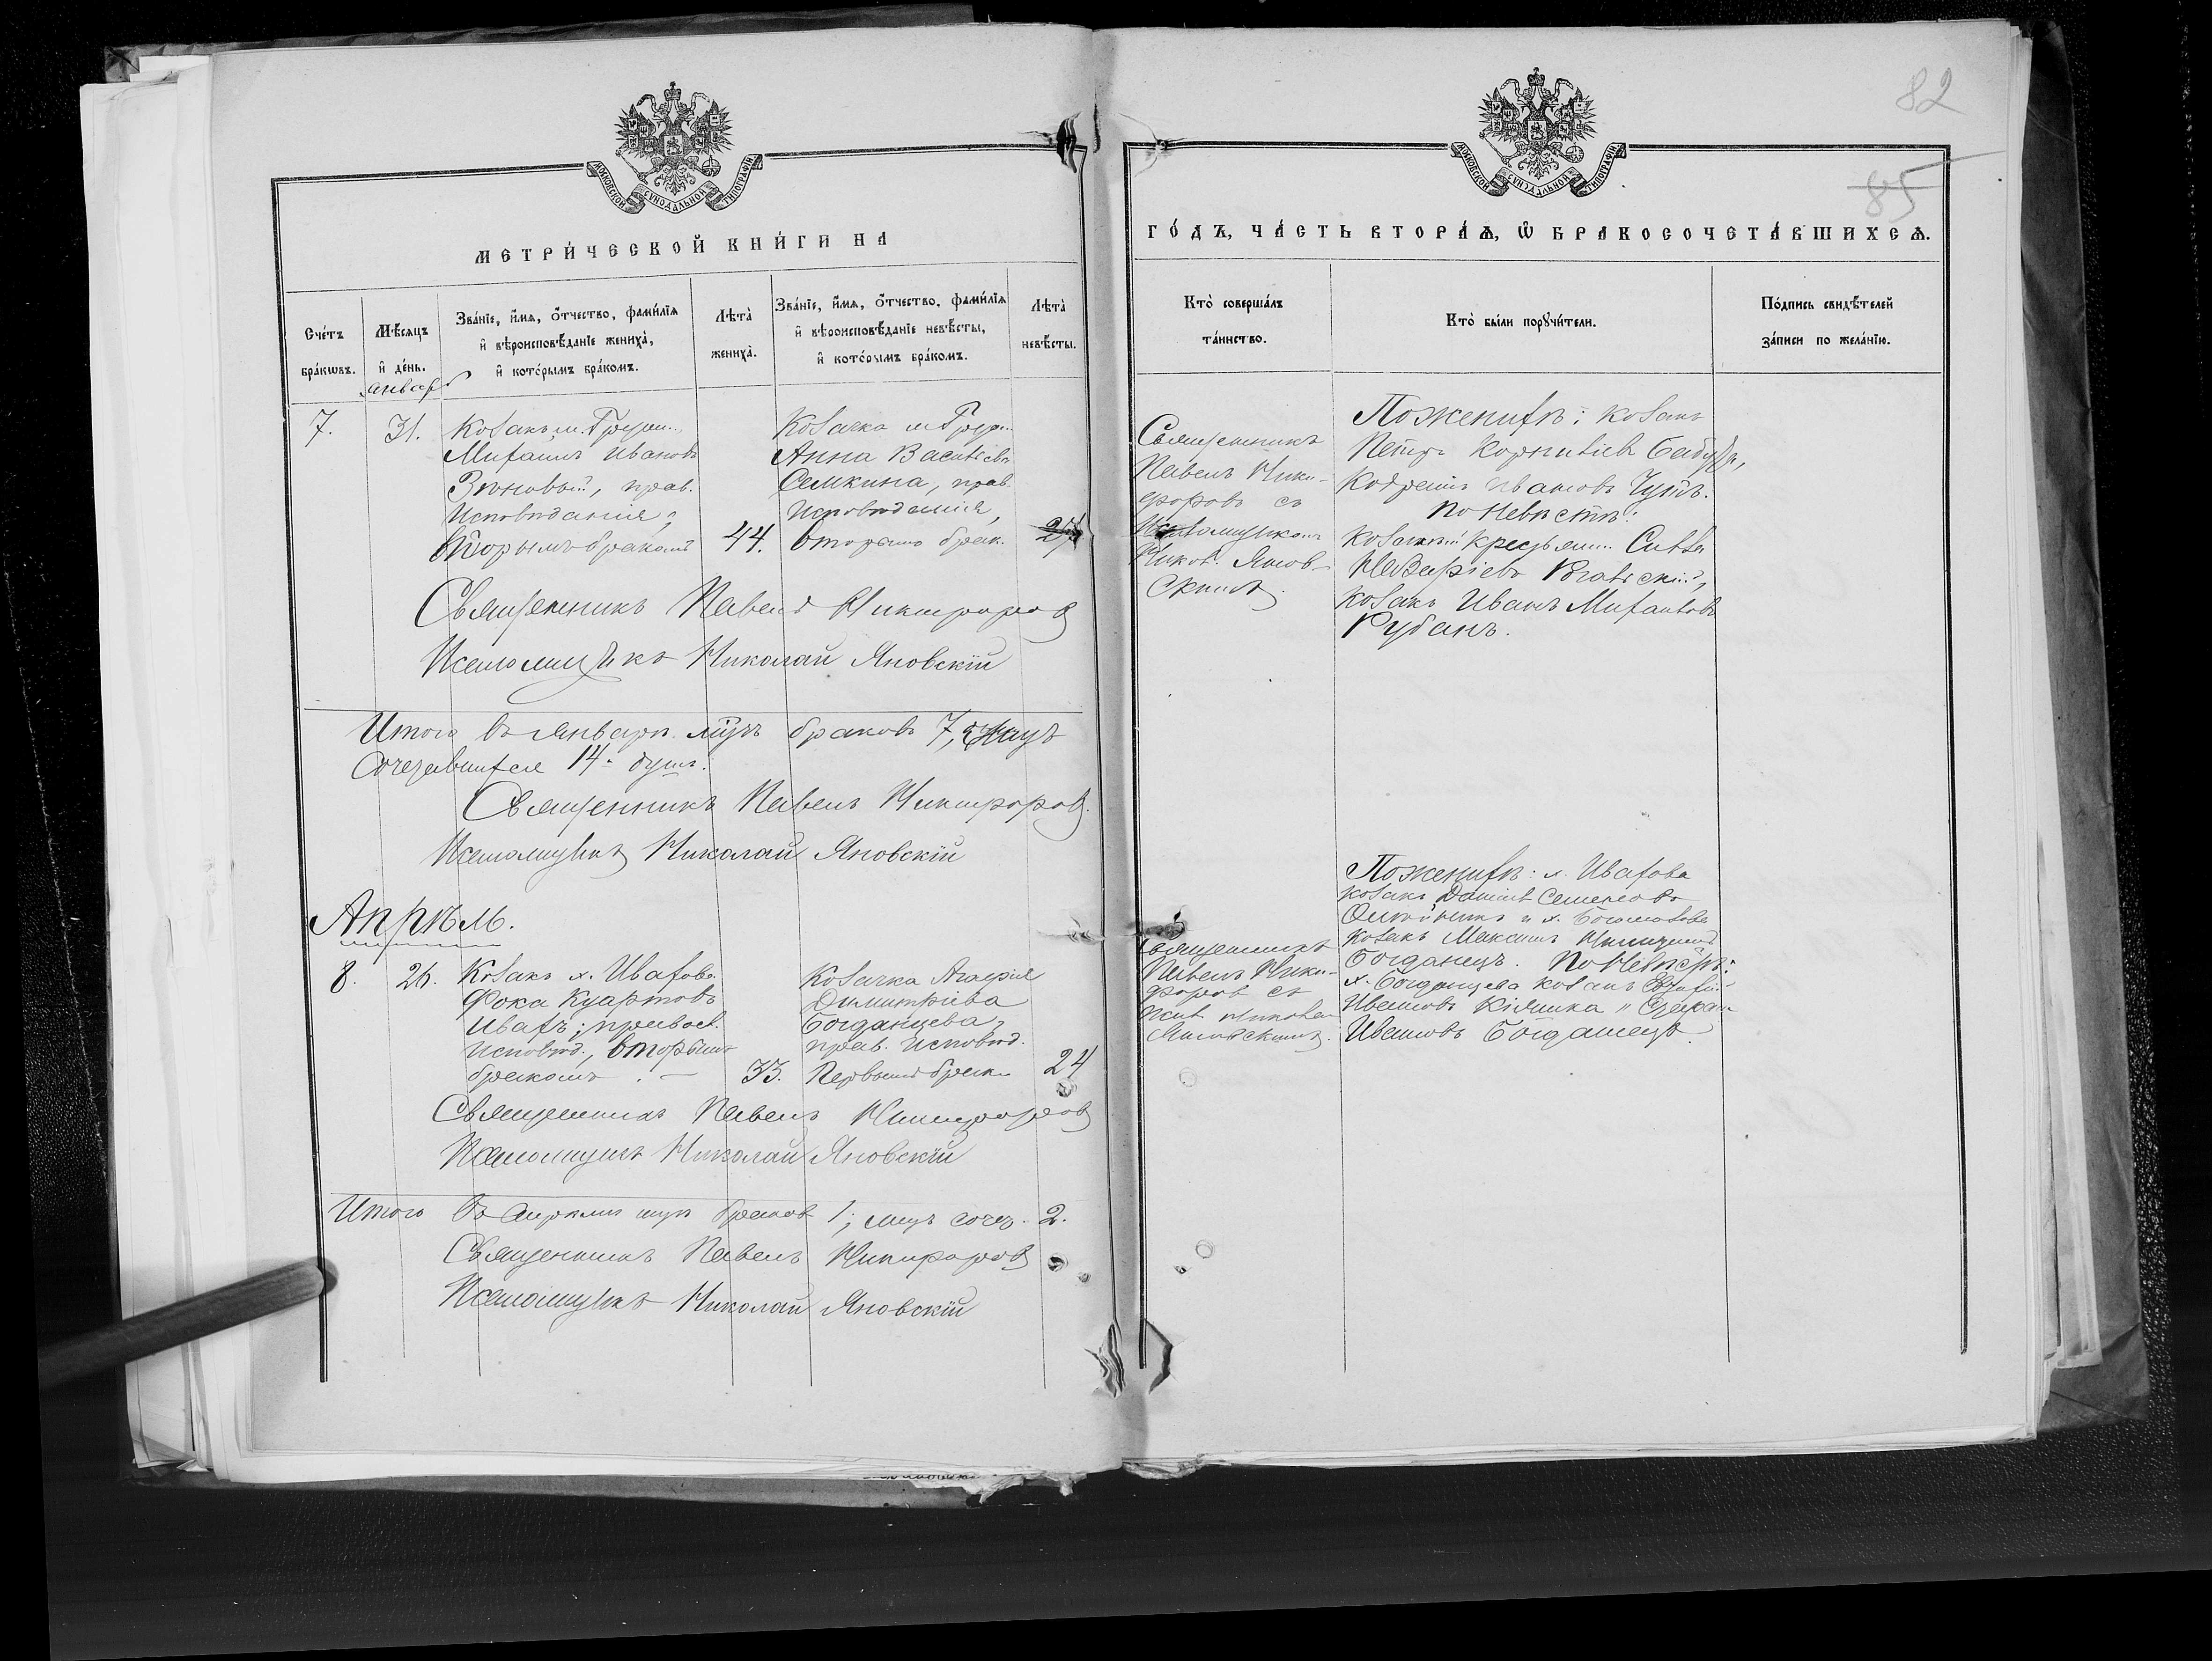 82
МОСКОВСКОЙ СѴНОДАЛЬНОЙ ТИПОГРАФІИ
МОСКОВСКОЙ СѴНОДАЛЬНОЙ ТИПОГРАФІИ
85
МЕТРИ́ЧЕСКОЙ КНИ́ГИ НА
ГО́ДЪ, ЧА́СТЬ ВТОРА́Ѧ, Ѽ БРАКОСОЧЕТА́ВШИХСѦ.
Сче́тъ
бра́кѡвъ.
Мѣ́сяцъ
и҆ де́нь.
Зва́нїе, и҆́мѧ, ѻ҆́тчество, фами́лїѧ
и҆ вѣроисповѣ́данїе жениха̀,
и҆ кото́рымъ бра́комъ.
Лѣта̀
жениха̀.
Зва́нїе, и҆́мѧ, ѻ҆́тчество, фами́лїѧ
и҆ вѣроисповѣ́данїе невѣ́сты,
и҆ кото́рымъ бра́комъ.
Лѣта̀
невѣ́сты.
Кто̀ соверша́лъ
та́инство.
Кто̀ бы́ли порꙋчи́тели.
По́дпись свидѣ́телей
за́писи по жела́нїю.
Январ
7.
31.
Козакъ м. Грун..
Михаилъ Ивановъ
прав.
Исповѣданія,
Вторымъ бракомъ
44.
Козачка м. Грун..
Анна Васильев
Семкина, прав.
Исповѣданія,
вторымъ брак.
27
Священникъ
Павелъ Ники-
форовъ съ
Псаломщикомъ
Никол. Янов-
скимъ
Поженихѣ: козакъ
Петръ
Ивановъ
по невѣстѣ:
козакъ Иванъ Михаиловъ
Рубанъ.
Священникъ Павелъ Никифоровъ
Псаломщикъ Николай Яновскій
Итого въ Январѣ м̃цѣ браковъ 7, лицъ
Сочетавшихся 14. душъ.
Священникъ Павелъ Никифоровъ.
Псаломщикъ Николай Яновскій
Апрѣль.
8.
26.
Козакъ х. Ивахова
Фока Куартовъ
Ивахъ; правосл.
исповѣд., вторымъ
бракомъ. —
33.
Козачка Агафія
Димитріева
Богданцева,
прав. Исповѣд.
Первымъ брак.
24
Священникъ
Павелъ Ники-
форовъ съ
Яновскимъ.
Поженихѣ: х. Ивахова
козакъ Даніилъ Семеновъ
козакъ Максимъ
Богданецъ. По невѣстѣ:
х. Богданцева козакъ
Ивановъ
Ивановъ Богданецъ.
Священникъ Павелъ Никифоровъ
Псаломщикъ Николай Яновскій
Итого въ Апрѣлѣ м̃цѣ браковъ 1, лицъ сочет. 2.
Священникъ Павелъ Никифоровъ
Псаломщикъ Николай Яновскій